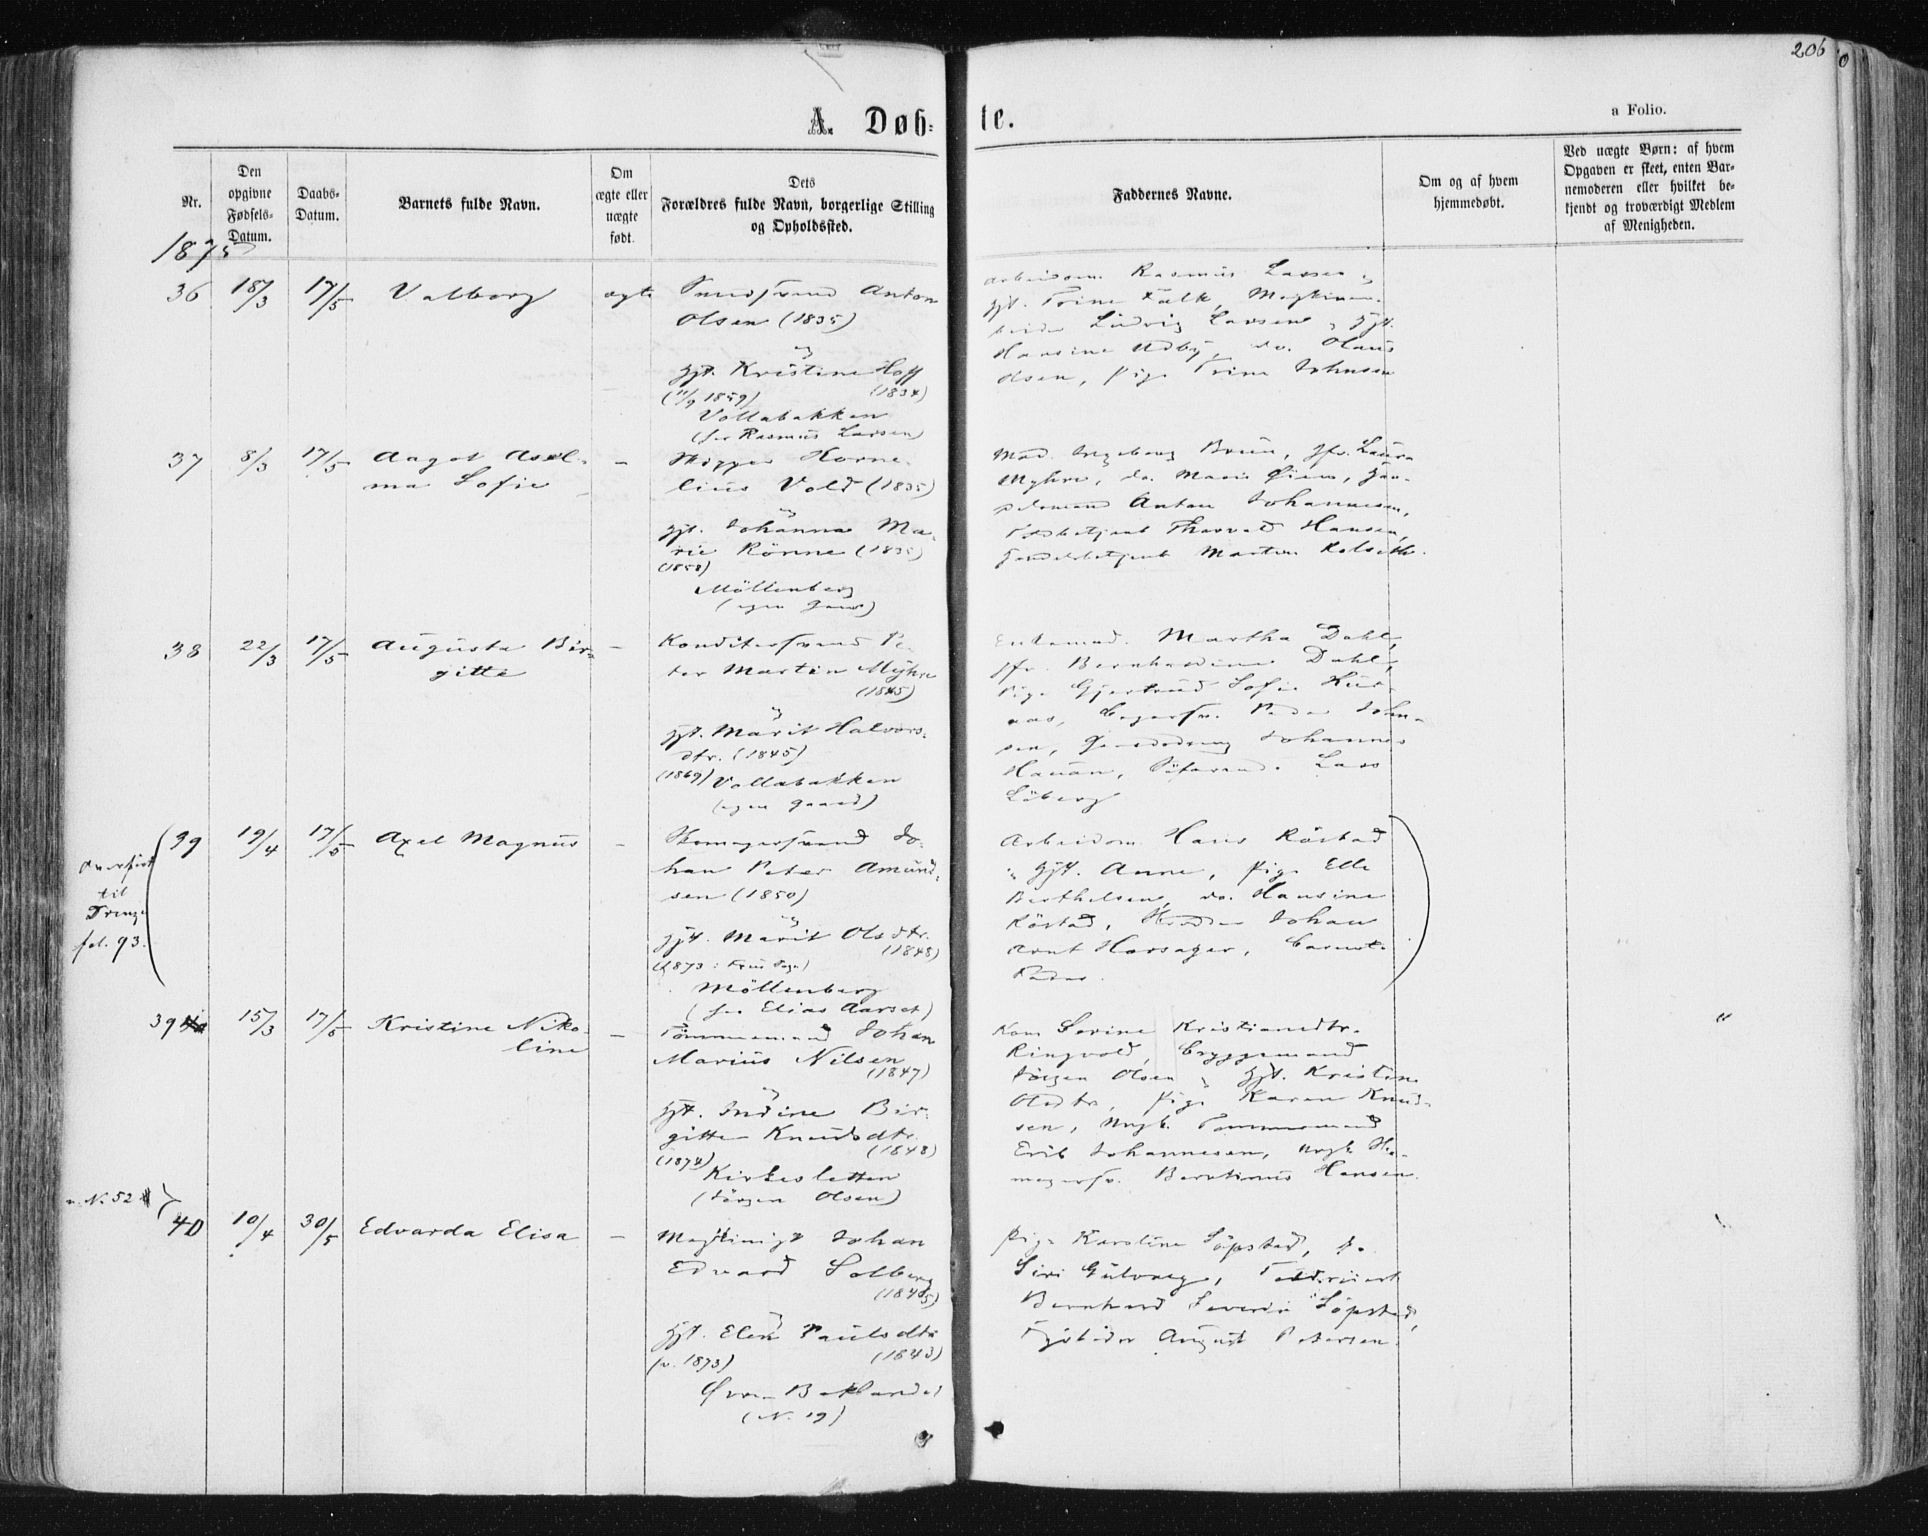 206
A. Døb-
te.
a Folio.
Nr.
Den
opgivne
Fødsels-
Datum.
Daabs-
Datum.
Barnets fulde Navn.
Om
ægte eller
uægte
født.
Dets
Forældres fulde Navn, borgerlige Stilling
og Opholdssted.
Faddernes Navne.
Om og af hvem
hjemmedøbt.
Ved uægte Børn: af hvem
Opgaven er skeet, enten Bar-
nemoderen eller hvilket be-
kjendt og troværdigt Medlem
af Menigheden.
1875
36 18/3 17/5 Valborg ægte
Anton
Olsen (1835)
og
gjt. Kristine Hoff
(11/9 1859) (1834)
Vollabakken
(hos Rasmus Larsen)
Arbeidsm. Rasmus Larsen og
gjt. Trine Falk,
Ludvig Larsen og gjt.
Hansine Udby, do. Olaus
Olsen, Pige Trine Johnsen
37 8/3 17/5 Aagot Asel-
ma Sofie
—
Skipper Korne-
lius Vold (1835)
og
gjt. Johanna Ma-
rie Rönne (1835)
(1858)
Möllenberg
(egen Gaard)
Mad. Ingeborg Bruun, Jfr. Laura
Myhre, do. Marie Öien,
Anton Johannesen,
Thorvald Hansen,
Handelsbetjent Martin Kolseth.
38 22/3 17/5 Augusta Bir-
gitte
—
Konditorsvend Pe-
ter Martin Myhre
(1845)
og
gjt. Marit Halvors-
dtr. (1845)
(1869) Vollabakken
(egen Gaard)
Enkemad. Martha Dahl,
Jfr. Bernhardine Dahl,
Pige Gjertrud Sofie
Peder John-
sen, Johannes
Hauan, Lars
Löberg
Overfört
til
fol. 93.
39 19/4 17/5 Axel Magnus
—
Skomagersvend Jo-
han Peter Amund-
sen (1850)
og
gjt. Marit Olsdtr.
(1848)
Möllenberg
(hos Elias Aarset)
Arbeidsm. Hans Röstad
og gjt. Anne, Pige Elle
Berthelsen, do. Hansine
Röstad, Johan
Arnt Horsager, Barnets
Fader.
39 15/3 17/5 Kristine Niko-
line
—
Tömmermand Johan
Marius Nilsen
(1847)
og
gjt. Indine Bir-
gitte Knudsdtr.
(1874) (1848)
Kirkesletten
(Jörgen Olsen)
Kone Serine Kristiansdtr.
Ringvold, Bryggemand
Jörgen Olsen og gjt. Kristine
Olsdtr, Pige Karen Knud-
sen, Ungk. Tömmermand
Erik Johannesen, Ungk. Sko-
magersv. Berntinus Hansen.
"
v. N. 52
40 10/4 30/5 Edvarda Elisa
—
Maskinist Johan
Edvard Solberg
(1845)
og
gjt. Elen Paulsdtr
(v. 1873) (1843)
Øvre Baklandet
(N. 19)
Pige Karoline Söpstad, do.
Siri Gulvaag,
Bernhard Severin Söpstad,
August Petersen.